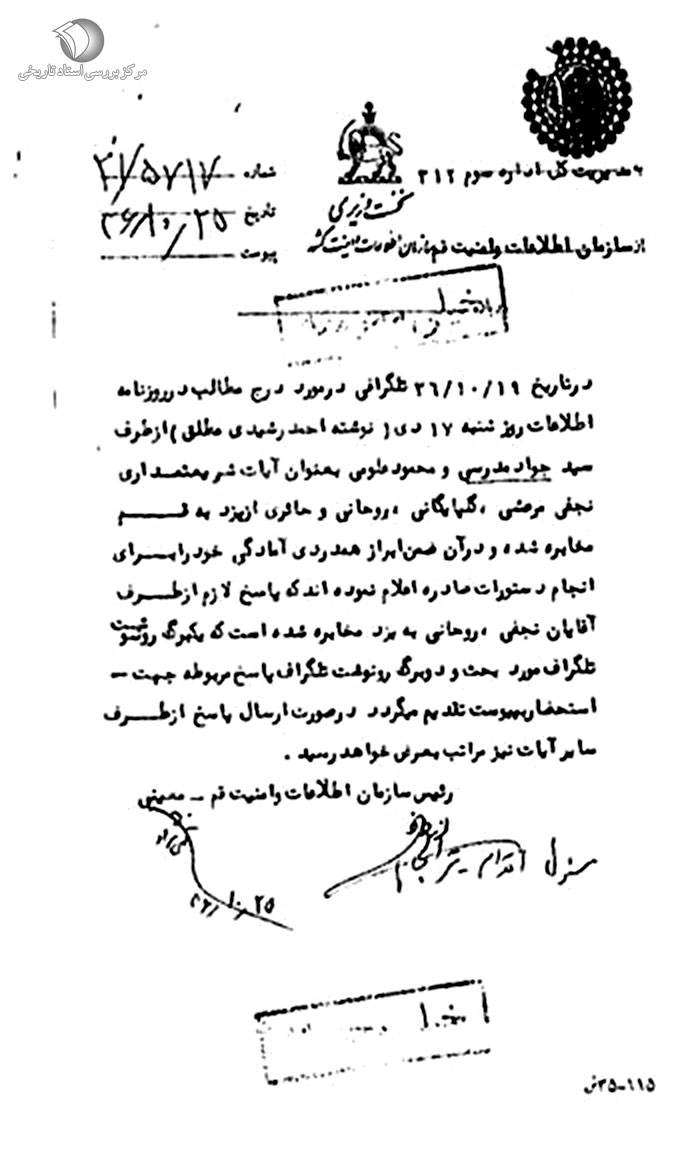 مرکز بررسی اسناد تاریخی
به مدیریت کل اداره سوم ۳۱۲
نخست وزیری
سازمان اطلاعات و امنیت کشور
از سازمان اطلاعات و امنیت قم
شماره ۲۱/۵۷۱۷
تاریخ ۳۶/۱۰/۲۵
پیوست
درباره
در تاریخ ۳۶/۱۰/۱۹ تلگرافی در مورد درج مطالب در روزنامه
اطلاعات روز شنبه ۱۷ دی ( نوشته احمد رشیدی مطلق ) از طرف
سید جواد مدرسی و محمود علومی بعنوان آیات شریعتمداری
نجفی مرعشی ، گلپایگانی ، روحانی و حائری از یزد به قم
مخابره شده و در آن ضمن ابراز همدردی آمادگی خود را برای
انجام دستورات صادره اعلام نموده اند که پاسخ لازم از طرف
آقایان نجفی ، روحانی به یزد مخابره شده است که یکبرگ رونوشت
تلگراف مورد بحث و دوبرگ رونوشت تلگراف پاسخ مربوطه جهت -
استحضار بپیوست تقدیم میگردد در صورت ارسال پاسخ از طرف
سایر آیات نیز مراتب بعرض خواهد رسید .
رئیس سازمان اطلاعات و امنیت قم - معینی
۳۶/۱۰/۲۵
۳۵-۱۱۵ش